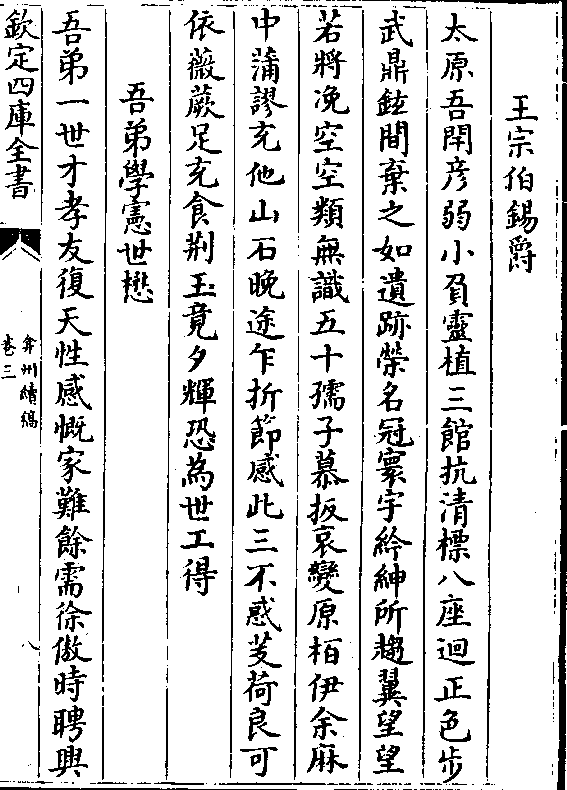 王宗伯錫爵
太原吾閈彦弱小負靈植三館抗清標八座迴正色步
武鼎鉉間棄之如遺跡榮名冠寰宇紟紳所趨翼望望
若將凂空空類無識五十孺子慕扳哀變原柏伊余麻
中蒲謬充他山石晚途乍折節感此三不惑芰荷良可
依薇蕨足充食荆玉竟夕輝恐為世工得
吾弟學憲世懋
吾弟一世才孝友復天性感慨家難餘需徐傲時聘興
欽定四庫全書
弇州續稿
卷三
八